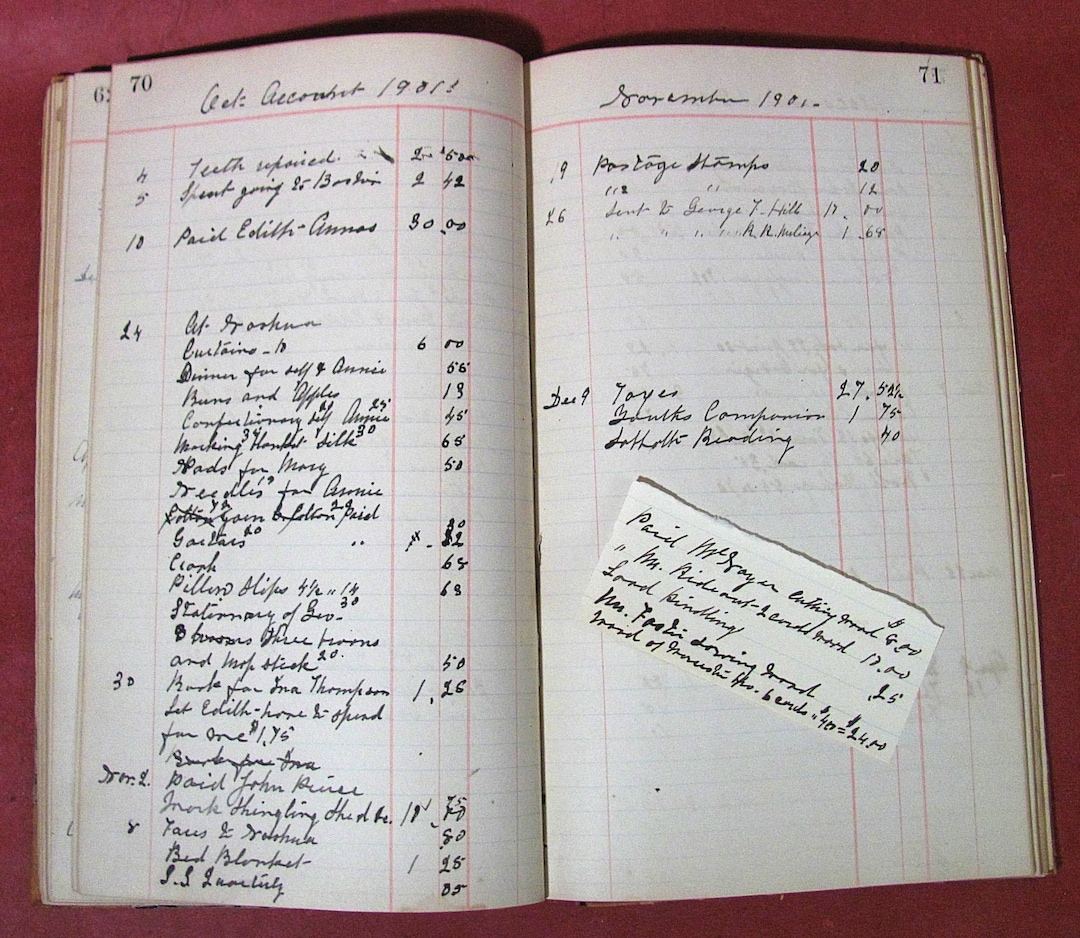 70
Oct- Account 1901.
4 Teeth repaired. 2 50
5 Spent going to Boston 2 42
10 Paid Edith - Annas 30.00
24 At Nashua
Curtains - 10 6 00
Dinner for self & Annie 55
Buns and Apples 13
Confectionary self Annie 25 45
Marking Hankf Silk 30 65
for Mary 50
Needles for Annie
Cotton Yarn Cotton Paid
20 "
Cloak 68
Pillow Slips 4 1/2 " 14 68
Stationary of Geo- 30
three brooms
and mop stick 20. 50
30 Book for Ina Thompson 1.25
Let Edith have to spend
for me $1.75
for Ina
Nov. 2. Paid John
Work Shingling Shed &c. 18
8 Fares to Nashua 80
Bed Blanket 1 25
S.S Quarterly 05
71
November 1901.
19 Postage Stamps 20
" " 12
26 Sent to George F. Hill 17.00
" " " " R. R. 1.68
Dec 9 Taxes 27.52 1/2
Youths Companion 1 75
Reading 40
Paid McVayer cutting wood $8.00
" Mr. Rideout 2 cords wood 17.00
Load kindling
Mr. Foster sawing wood .25
Wood of 6 cords $4.00 = $24.00